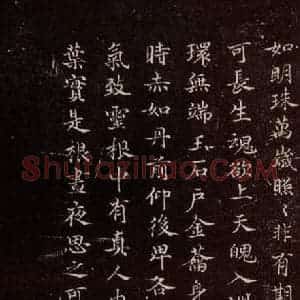 如明珠萬歲照〻非有期
可長生魂欲上天魄入
環無端玉石戶金籥身
時赤如丹前仰後卑各
氣致靈根中有真人
葉實是根晝夜思之可
Shufaziliao.com